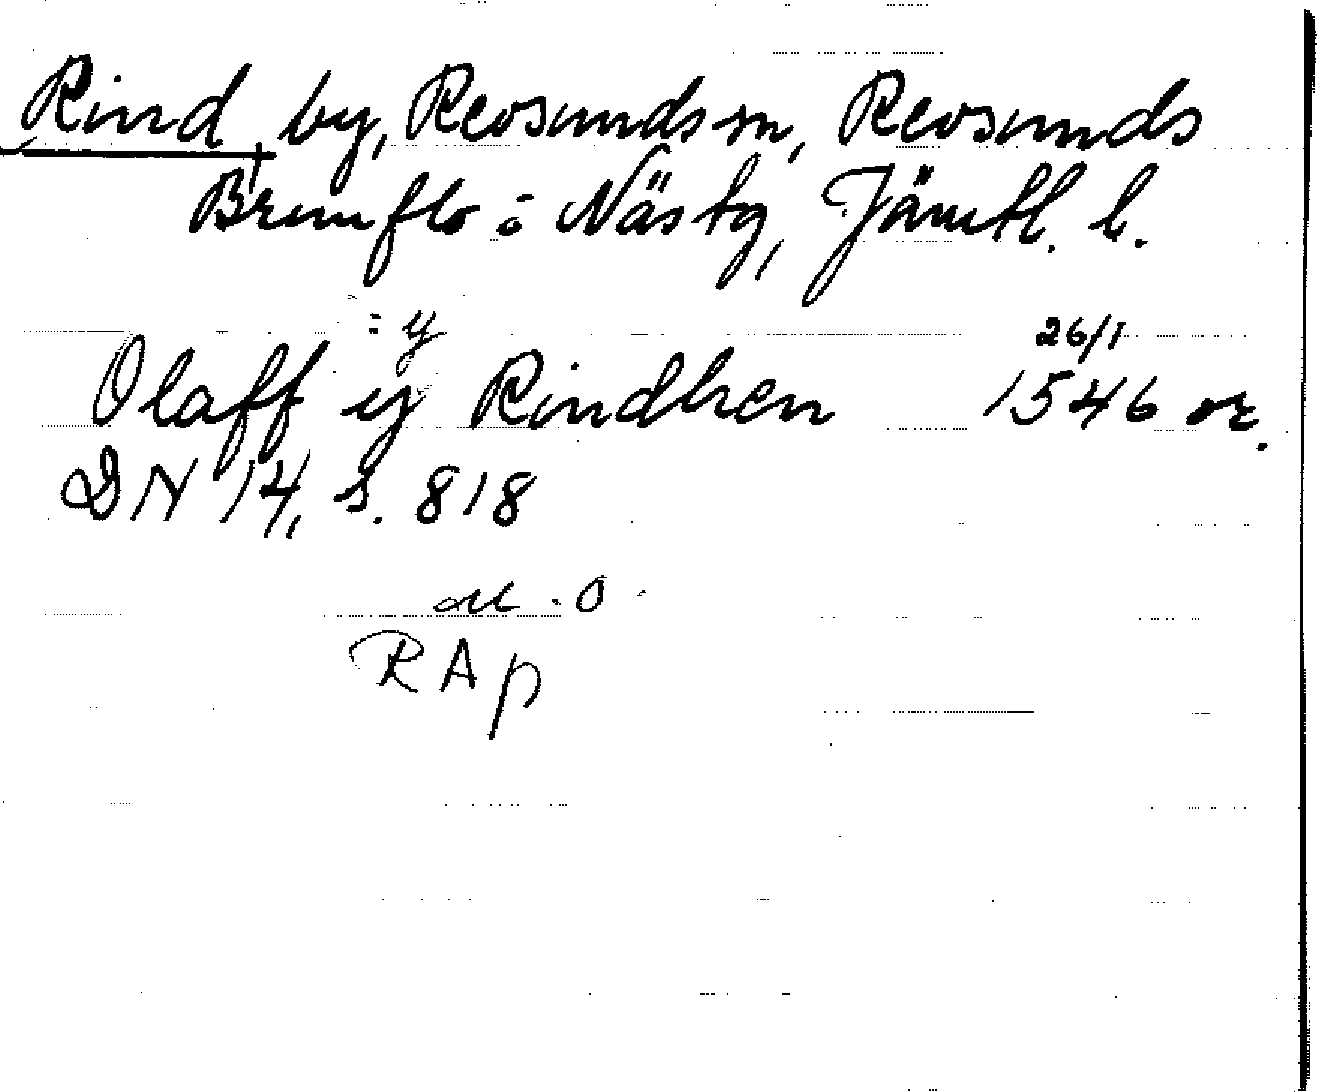 Rind, by, Revsunds sn, Revsunds
Brunflo o. Näs tg, Jämtl. l.
= y
Olaff y Rindhen 26/1 1546 or.
DN 14, s. 818
RAp